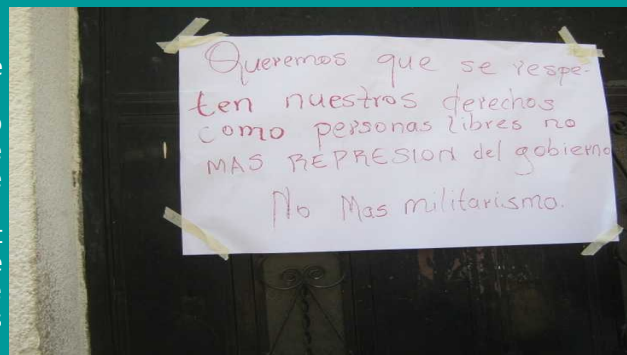 Queremos que se respe-
ten nuestros derechos
como personas libres no
MAS REPRESION del gobierno
No Mas militarismo.